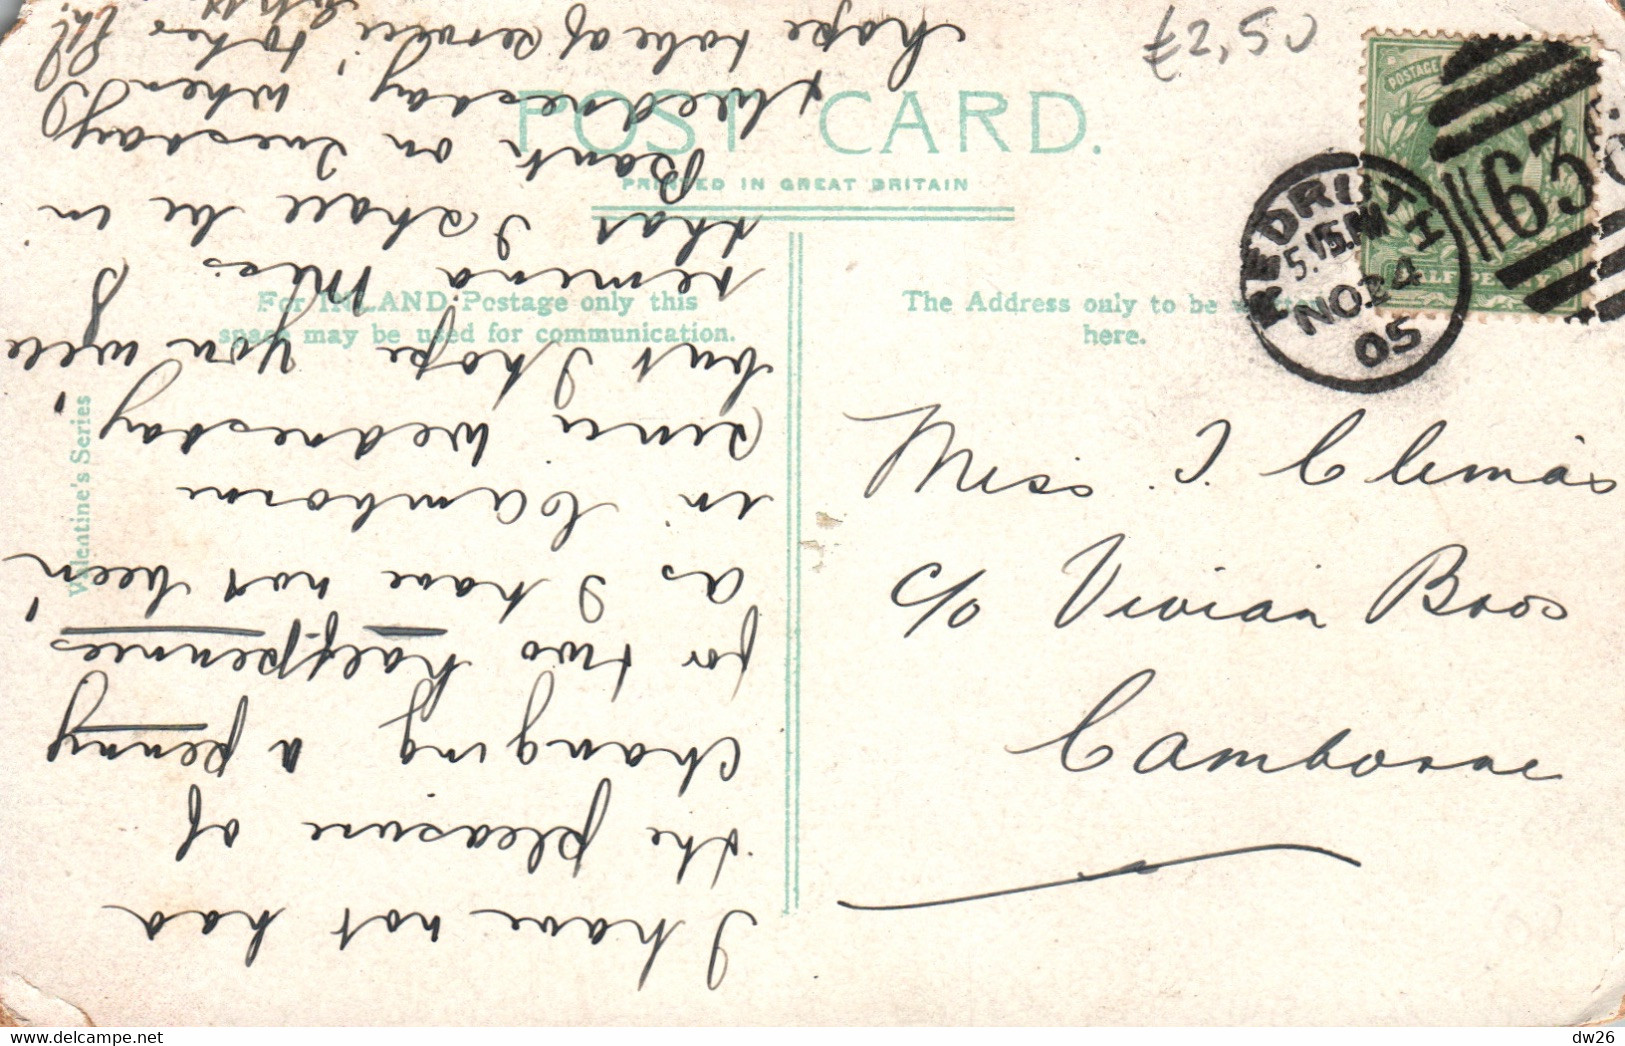 £2,50
POST CARD.
PRINTED IN GREAT BRITAIN
For INLAND Postage only this
space may be used for communication.
The Address only to be
here.
Valentine's Series
POSTAGE
REDRUTH
5.15PM
NO 24
05
63
Miss. J. Clemas
c/o Vivian Bros
Camborne
I have not had
the pleasure of
changing a penny
for two halfpennies
as I have not been
in Camborne
since Wednesday
but I hope you will
remind Mrs. J
that I shall be in
Bank on Tuesday
Wednesday when I
hope to be of service to her
dw26